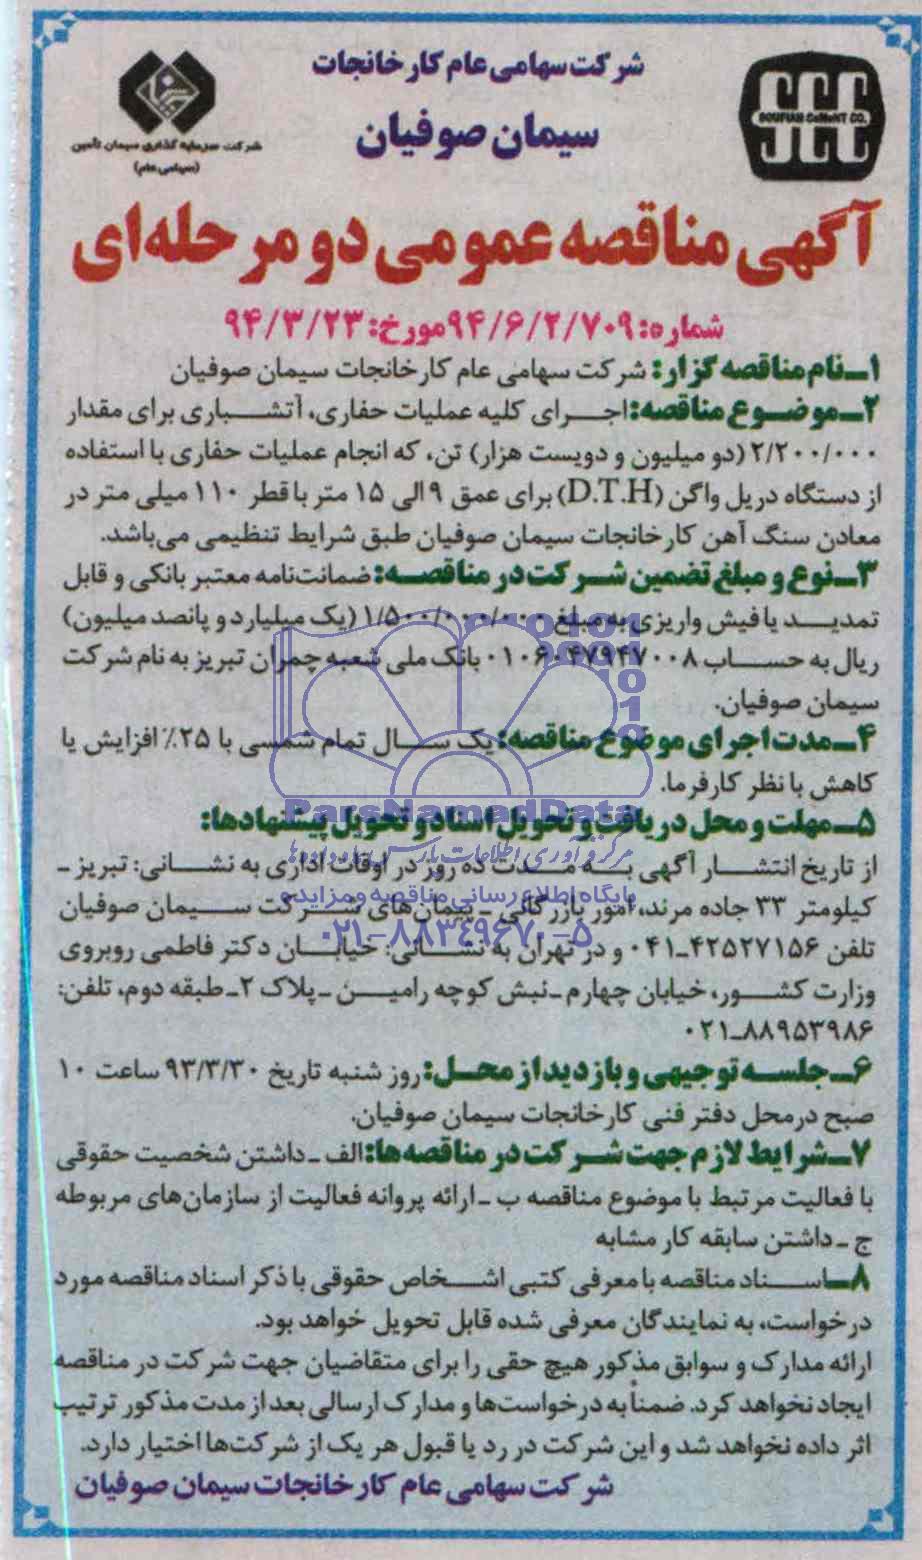 شرکت سهامی عام کارخانجات
سیمان صوفیان
SOUFIAN CeMeNT CO.
شرکت سرمایه گذاری سیمان تأمین
(سهامی عام)
آگهی مناقصه عمومی دو مرحله‌ای
شماره: ۹۴/۶/۲/۷۰۹مورخ: ۹۴/۳/۲۳
۱ـ نام مناقصه گزار: شرکت سهامی عام کارخانجات سیمان صوفیان
۲ـ موضوع مناقصه: اجرای کلیه عملیات حفاری، آتشباری برای مقدار
۲/۲۰۰/۰۰۰ (دو میلیون و دویست هزار) تن، که انجام عملیات حفاری با استفاده
از دستگاه دریل واگن (D.T.H) برای عمق ۹ الی ۱۵ متر با قطر ۱۱۰ میلی متر در
معادن سنگ آهن کارخانجات سیمان صوفیان طبق شرایط تنظیمی می‌باشد.
۳ـ نوع و مبلغ تضمین شرکت در مناقصه: ضمانت‌نامه معتبر بانکی و قابل
تمدید یا فیش واریزی به مبلغ ۱/۵۰۰/۰۰۰/۰۰۰ (یک میلیارد و پانصد میلیون)
ریال به حساب ۰۱۰۶۰۴۷۹۴۷۰۰۸ بانک ملی شعبه چمران تبریز به نام شرکت
سیمان صوفیان.
۴ـ مدت اجرای موضوع مناقصه: یک سال تمام شمسی با ۲۵٪ افزایش یا
کاهش با نظر کارفرما.
ParsNamadData
۵ـ مهلت و محل دریافت و تحویل اسناد و تحویل پیشنهادها:
مرکز فرآوری اطلاعات پارس نماد داده‌ها
از تاریخ انتشار آگهی به مدت ده روز در اوقات اداری به نشانی: تبریز ـ
پایگاه اطلاع رسانی مناقصه و مزایده
کیلومتر ۳۳ جاده مرند، امور بازرگانی ـ پیمان‌های شرکت سیمان صوفیان
۰۲۱-۸۸۳٤۹۶۷۰-۵
تلفن ۴۲۵۲۷۱۵۶ـ۰۴۱ و در تهران به نشانی: خیابان دکتر فاطمی روبروی
وزارت کشور، خیابان چهارم ـ نبش کوچه رامین ـ پلاک ۲ـ طبقه دوم، تلفن:
۸۸۹۵۳۹۸۶ـ۰۲۱
۶ـ جلسه توجیهی و بازدید از محل: روز شنبه تاریخ ۹۳/۳/۳۰ ساعت ۱۰
صبح در محل دفتر فنی کارخانجات سیمان صوفیان.
۷ـ شرایط لازم جهت شرکت در مناقصه‌ها: الف ـ داشتن شخصیت حقوقی
با فعالیت مرتبط با موضوع مناقصه ب ـ ارائه پروانه فعالیت از سازمان‌های مربوطه
ج ـ داشتن سابقه کار مشابه
۸ـ اسناد مناقصه با معرفی کتبی اشخاص حقوقی با ذکر اسناد مناقصه مورد
درخواست، به نمایندگان معرفی شده قابل تحویل خواهد بود.
ارائه مدارک و سوابق مذکور هیچ حقی را برای متقاضیان جهت شرکت در مناقصه
ایجاد نخواهد کرد. ضمناً به درخواست‌ها و مدارک ارسالی بعد از مدت مذکور ترتیب
اثر داده نخواهد شد و این شرکت در رد یا قبول هر یک از شرکت‌ها اختیار دارد.
شرکت سهامی عام کارخانجات سیمان صوفیان